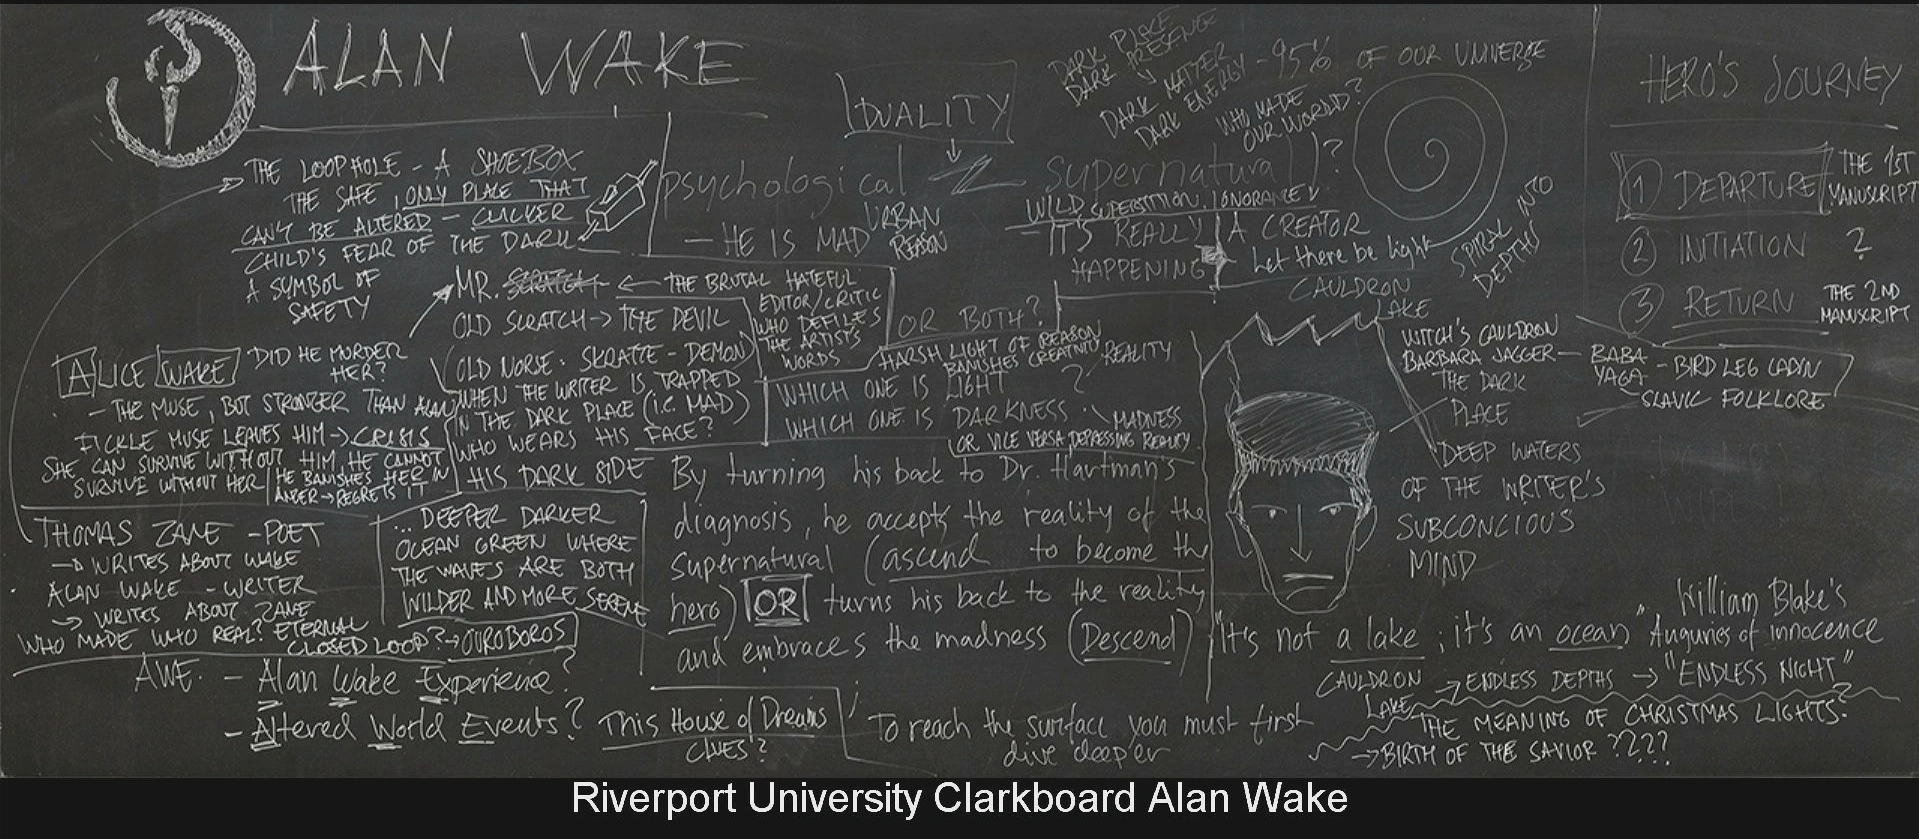 ALAN WAKE
THE LOOPHOLE - A SHOEBOX
THE SAFE, ONLY PLACE THAT
CAN'T BE ALTERED - CLICKER
CHILD'S FEAR OF THE DARK
A SYMBOL OF
SAFETY
DUALITY
psychological
- HE IS MAD
URBAN
REASON
supernatural?
WILD SUPERSTITION, IGNORANCE
- IT'S REALLY
HAPPENING
A CREATOR
Let there be light
DARK PLACE
DARK PRESENCE
DARK MATTER
DARK ENERGY - 95% OF OUR UNIVERSE
WHO MADE
OUR WORLD?
SPIRAL INTO
DEPTHS
HERO'S JOURNEY
1 DEPARTURE THE 1ST
MANUSCRIPT
2 INITIATION ?
3 RETURN THE 2ND
MANUSCRIPT
MR. SCRATCH ← THE BRUTAL HATEFUL
EDITOR/CRITIC
WHO DEFILES
THE ARTIST'S
WORDS
OLD SCRATCH → THE DEVIL
OLD NORSE: SKRATTE - DEMON
WHEN THE WRITER IS TRAPPED
IN THE DARK PLACE (I.E. MAD)
WHO WEARS HIS FACE?
HIS DARK SIDE
OR BOTH?
HARSH LIGHT OF REASON
BANISHES CREATIVITY
WHICH ONE IS LIGHT ? REALITY
WHICH ONE IS DARKNESS. MADNESS
OR VICE VERSA DEPRESSING REALITY
ALICE WAKE DID HE MURDER
HER?
- THE MUSE, BUT STRONGER THAN ALAN
FICKLE MUSE LEAVES HIM → CRISIS
SHE CAN SURVIVE WITHOUT HIM, HE CANNOT
SURVIVE WITHOUT HER
HE BANISHES HER IN
ANGER → REGRETS IT
THOMAS ZANE - POET
→ WRITES ABOUT WAKE
ALAN WAKE - WRITER
→ WRITES ABOUT ZANE
WHO MADE WHO REAL? ETERNAL
CLOSED LOOP? → OUROBOROS
... DEEPER DARKER
OCEAN GREEN WHERE
THE WAVES ARE BOTH
WILDER AND MORE SERENE
AWE. - Alan Wake Experience?
- Altered World Events?
This House of Dreams
CLUES?
By turning his back to Dr. Hartman's
diagnosis, he accepts the reality of the
supernatural (ascend to become the
hero) OR turns his back to the reality
and embraces the madness (Descend)
To reach the surface you must first
dive deeper
CAULDRON
LAKE
WITCH'S CAULDRON
BARBARA JAGGER - BABA
YAGA - BIRD LEG CABIN
SLAVIC FOLKLORE
THE DARK
PLACE
DEEP WATERS
OF THE WRITER'S
SUBCONCIOUS
MIND
"It's not a lake; it's an ocean"
William Blake's
Auguries of innocence
CAULDRON
LAKE → ENDLESS DEPTHS → "ENDLESS NIGHT"
THE MEANING OF CHRISTMAS LIGHTS?
→ BIRTH OF THE SAVIOR ????
Riverport University Clarkboard Alan Wake